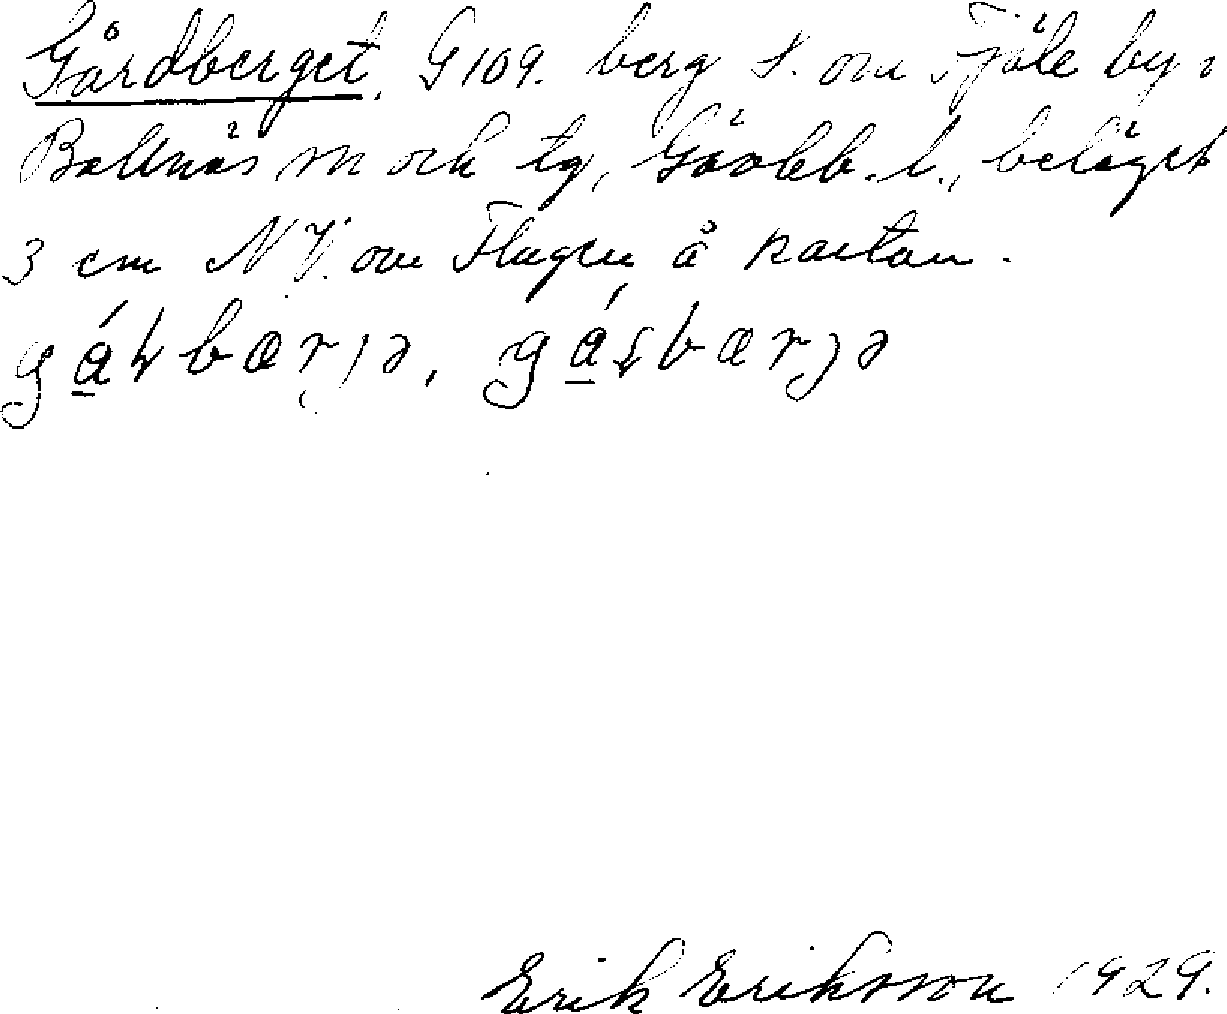 Gårdberget. G 109. berg S. om Fjäle by i
Bollnäs sn och tg, Gävleb. l., beläget
3 cm N.V. om Flugen å kartan.
Erik Eriksson 1929.